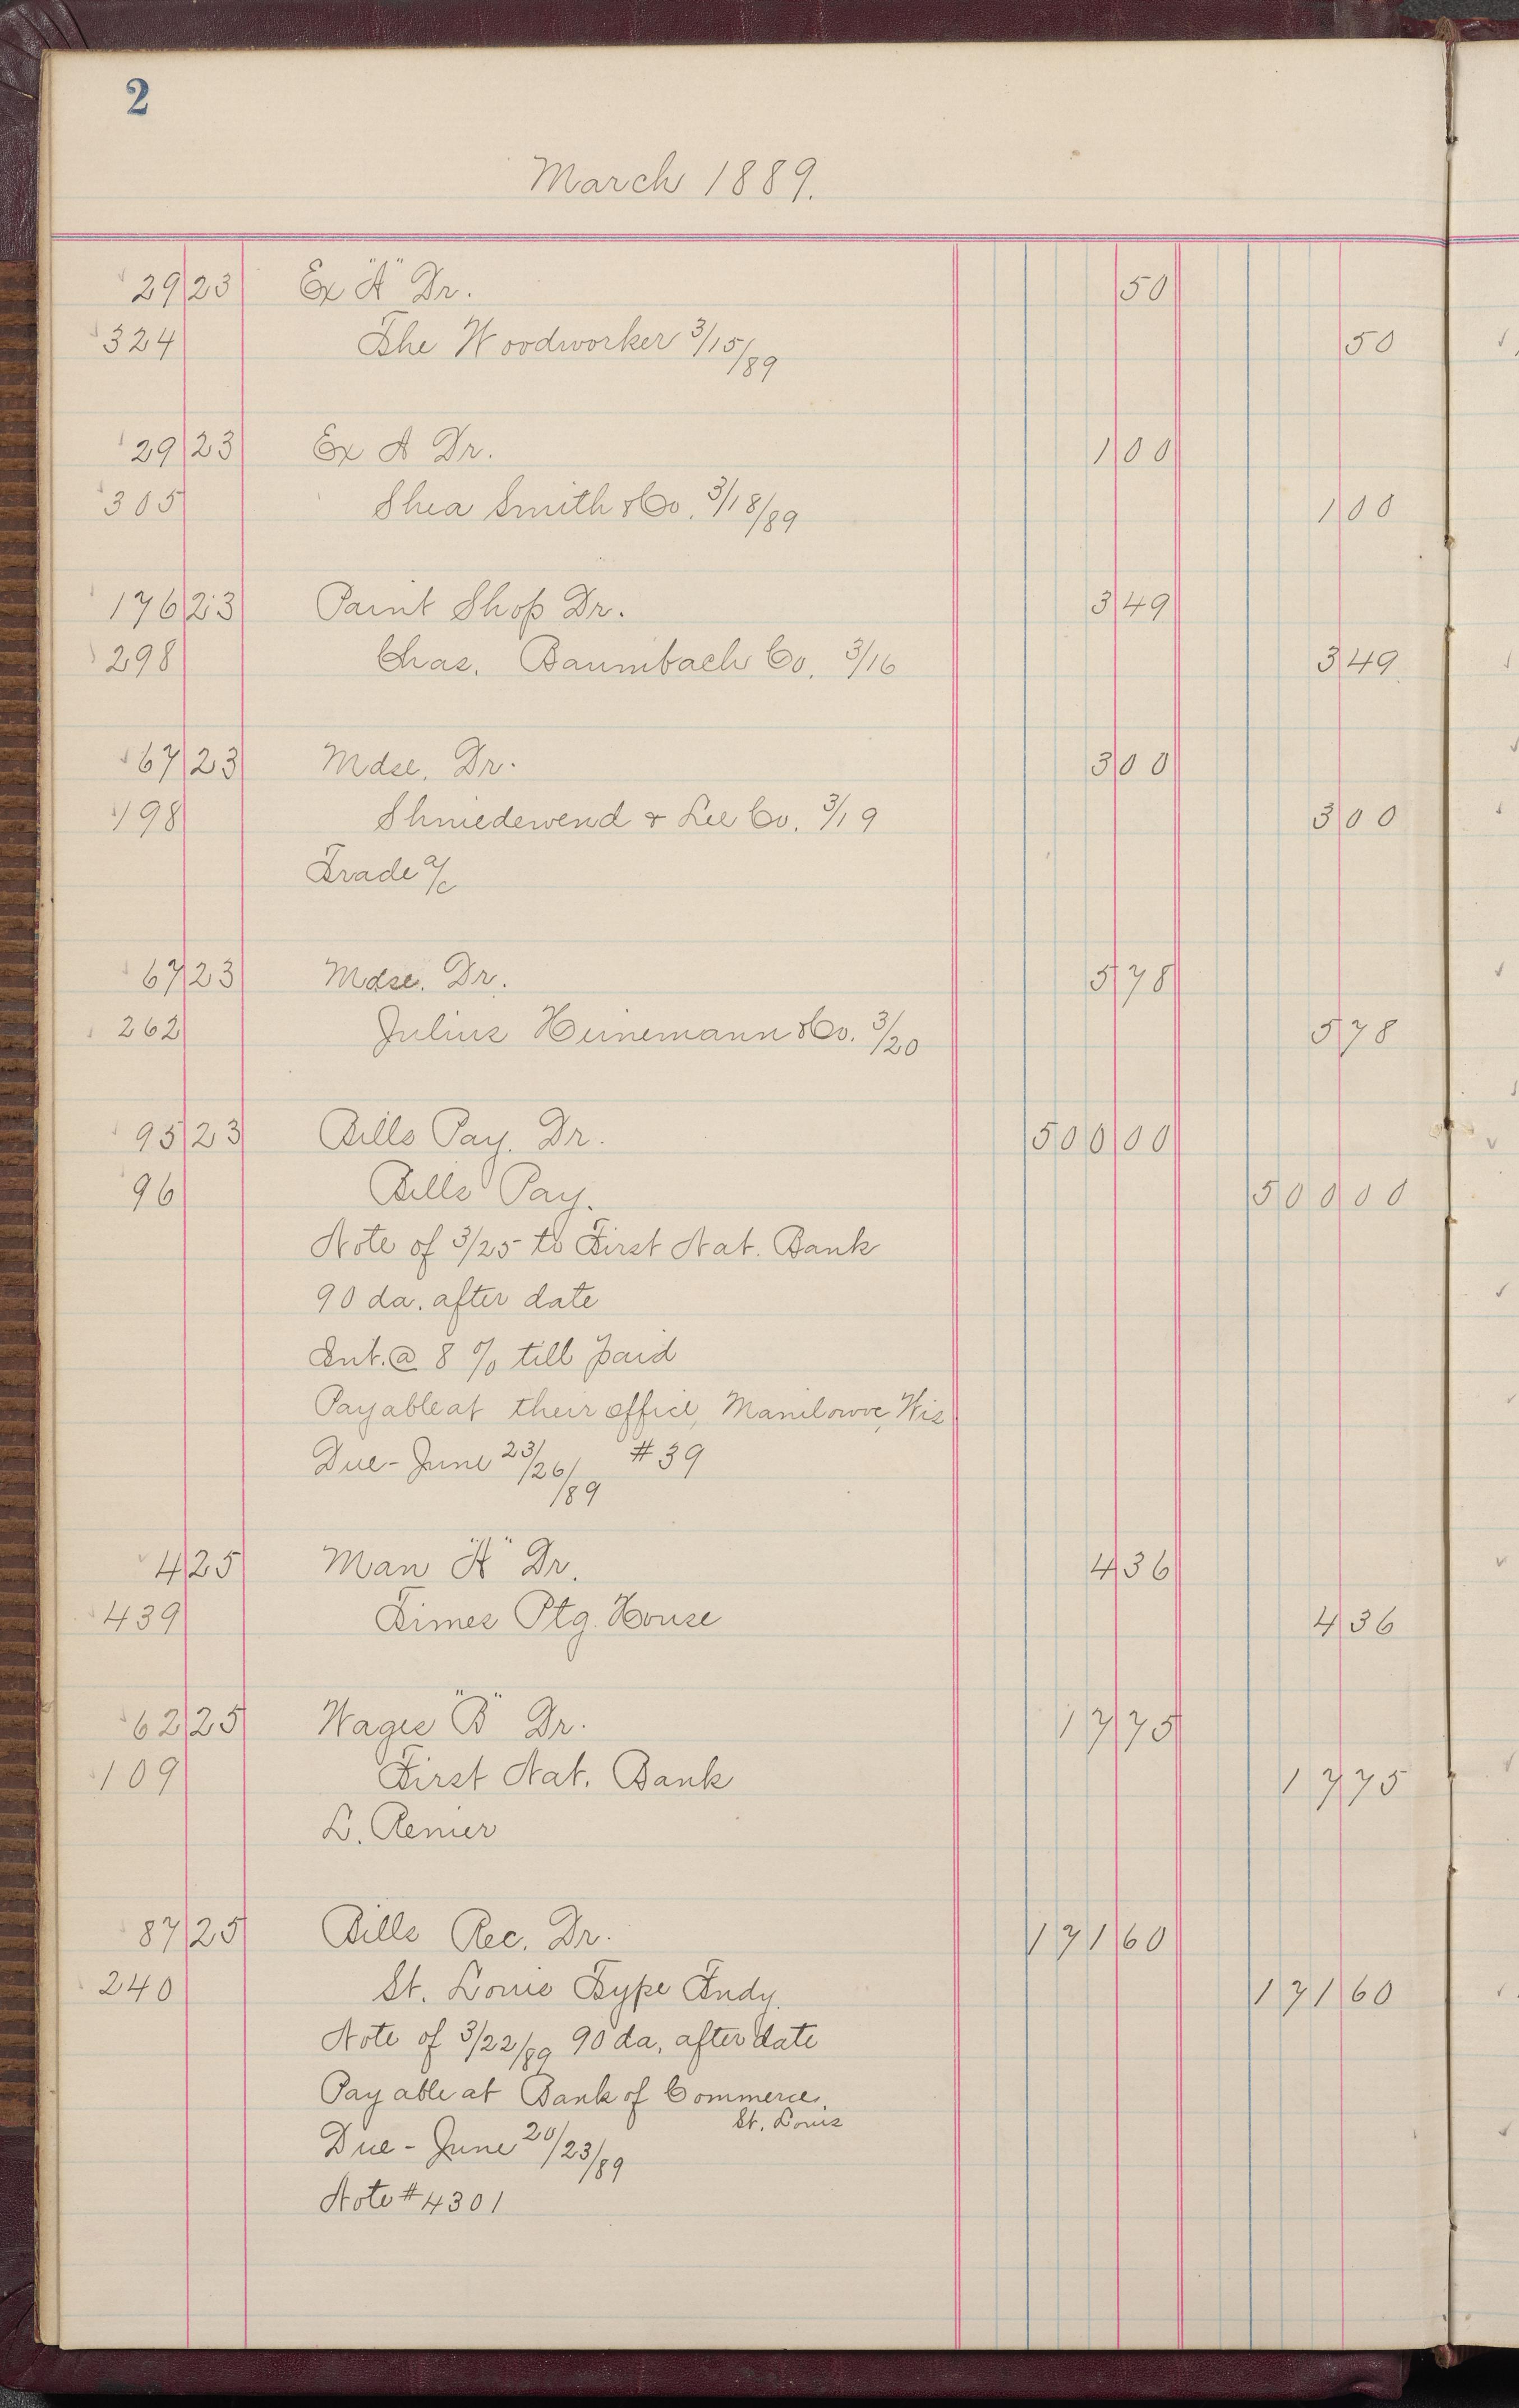 2
March 1889.
29 23 Ex "A" Dr. 50
324 The Woodworker 3/15/89 50
29 23 Ex A Dr. 1 00
305 Shea Smith & Co. 3/18/89 1 00
176 23 Paint Shop Dr. 3 49
298 Chas. Baumbach Co. 3/16 3 49
67 23 Mdse. Dr. 3 00
198 Shniedewend & Lee Co. 3/19 3 00
Trade a/c
67 23 Mdse. Dr. 5 78
262 Julius Heinemann & Co. 3/20 5 78
95 23 Bills Pay. Dr. 500 00
96 Bills Pay. 500 00
Note of 3/25 to First Nat. Bank
90 da. after date
Int. @ 8 % till paid
Payable at their office, Manitowoc, Wis
Due - June 23/26/89 #39
4 25 Man "A" Dr. 4 36
439 Times Ptg. House 4 36
62 25 Wages "B" Dr. 17 75
109 First Nat. Bank 17 75
L. Renier
87 25 Bills Rec. Dr. 171 60
240 St. Louis Type Fndy. 171 60
Note of 3/22/89 90 da. after date
Payable at Bank of Commerce,
St. Louis
Due - June 20/23/89
Note #4301